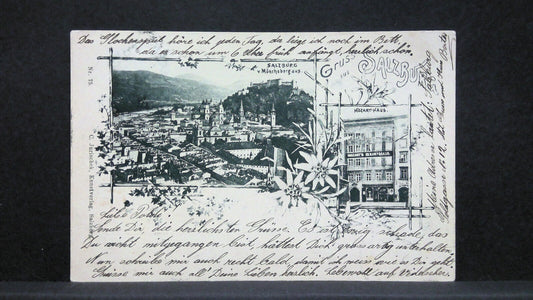 Das Glockenspiel höre ich jeden Tag, da liege ich noch im Bett,
da es schon um 6 Uhr früh anfängt, herrlich schön.
Nr. 75
G. Jurischek, Kunstverlag, Salzburg
SALZBURG
v. Mönchsberg aus.
Gruss aus SALZBURG
MOZART-HAUS.
MOZART'S GEBURTSHAUS
Meine Adresse lautet: Salzburg
Liebe
sende Dir die herzlichsten Grüsse. Es ist schade, das
Du nicht mitgegangen bist, hättest Dich grossartig unterhalten
Nun schreibe mir auch recht bald, damit ich weiss wie es Dir geht.
Grüsse mir auch all Deine Lieben herzlich. Lebewohl auf Wiedersehen